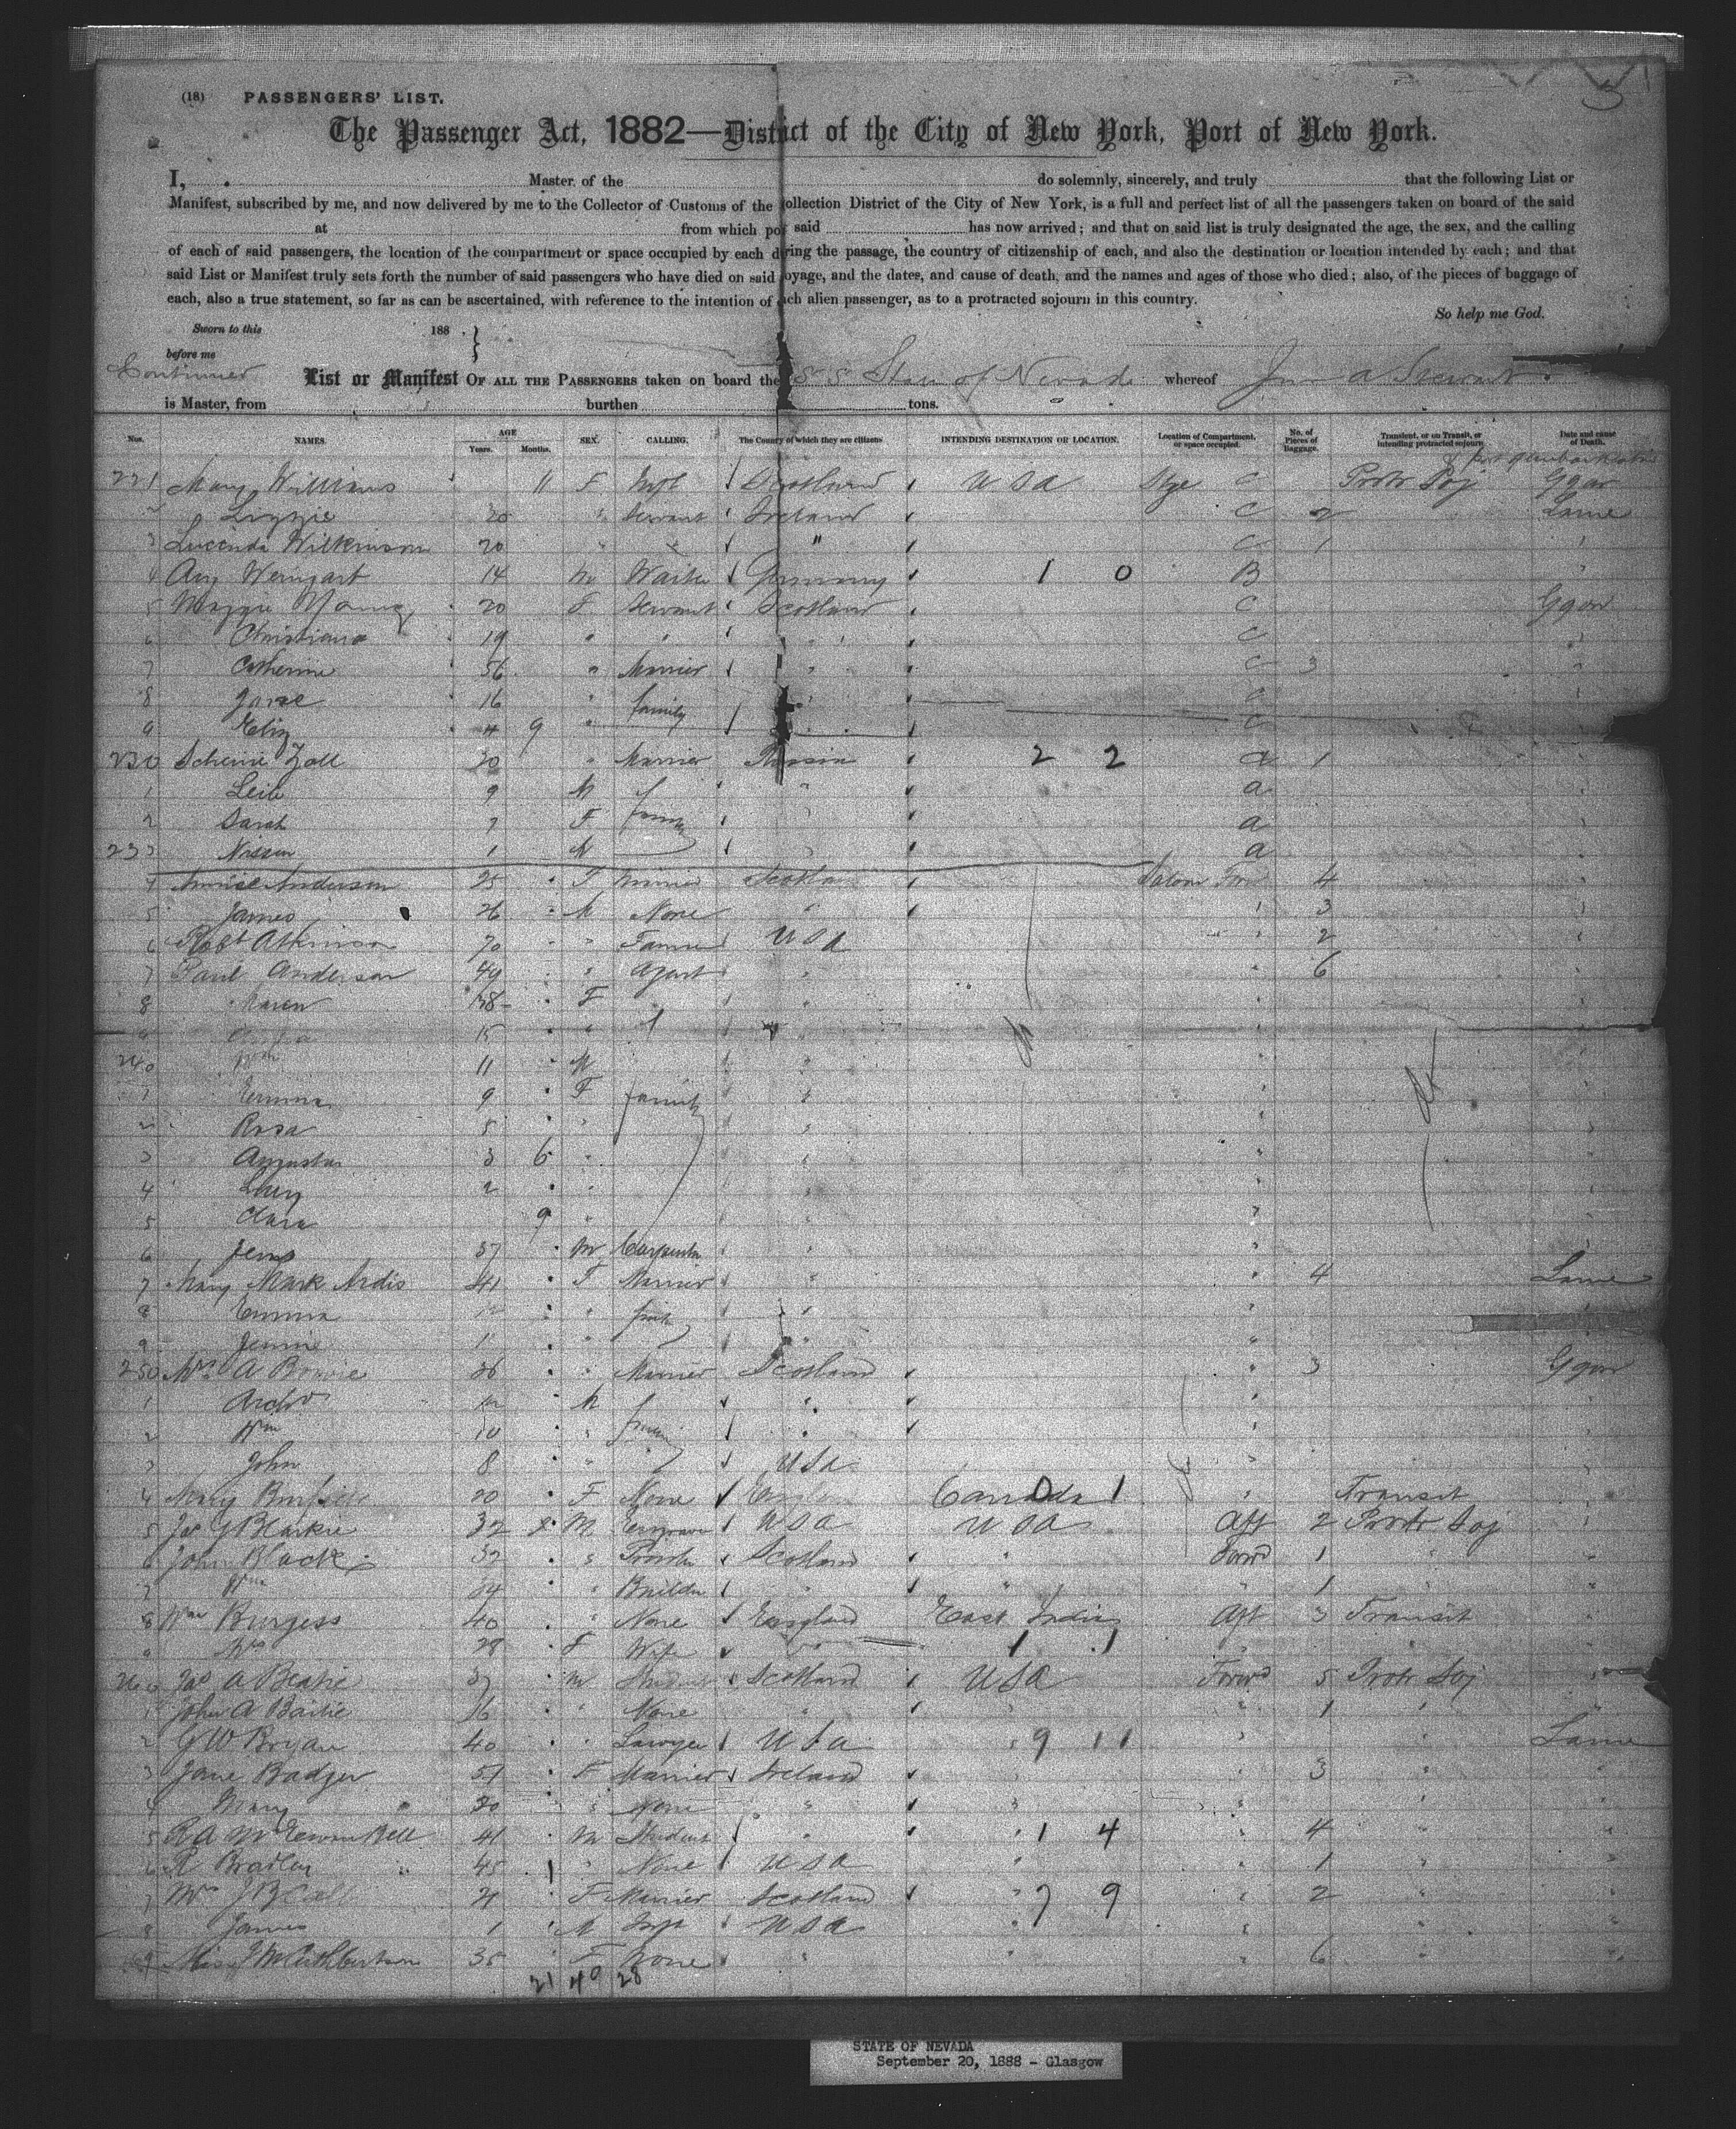 (18) PASSENGERS' LIST.
The Passenger Act, 1882—District of the City of New York, Port of New York.
I, Master of the do solemnly, sincerely, and truly that the following List or
Manifest, subscribed by me, and now delivered by me to the Collector of Customs of the ollection District of the City of New York, is a full and perfect list of all the passengers taken on board of the said
at from which po said has now arrived; and that on said list is truly designated the age, the sex, and the calling
of each of said passengers, the location of the compartment or space occupied by each d ring the passage, the country of citizenship of each, and also the destination or location intended by each; and that
said List or Manifest truly sets forth the number of said passengers who have died on said oyage, and the dates, and cause of death, and the names and ages of those who died; also, of the pieces of baggage of
each, also a true statement, so far as can be ascertained, with reference to the intention of ach alien passenger, as to a protracted sojourn in this country.
So help me God.
Sworn to this 188 }
before me
Continued List or Manifest OF ALL THE PASSENGERS taken on board the S S State of Nevada whereof Jno A Stewart
is Master, from burthen tons.
Nos. NAMES. AGE Years. Months. SEX. CALLING. The County of which they are citizens INTENDING DESTINATION OR LOCATION. Location of Compartment, or space occupied. No. of Pieces of Baggage. Transient, or on Transit, or intending protracted sojourn Date and cause of Death.
221 Mary Williams 11 F Inft Scotland U S A Stge C Protr Soj Ggow
2 Lizzie 20 " Servant Ireland C 2 Larne
3 Lucinda Wilkinson 20 " " " C 1 "
4 Weingart 14 M Waiter Germany 1 0 B "
5 Maggie Young 20 F Servant Scotland C Ggow
6 Christiana 19 " " " C "
7 Catherine 56 " Married " C 3 "
8 16 " family " C
9 Eliz 4 9 " " C
230 Zoll 30 " Married Russia 2 2 a 1
1 Leib 9 M family " a
2 Sarah 7 F " a
233 Nissen 1 M " a
4 Annie Anderson 25 F Married Scotland Saloon For 4
5 James 26 M None " " 3
6 Robt Atkinson 70 " Farmer U S A " 2
7 Paul Anderson 49 " Agent " " 6
8 Karen 38 F " "
9 15 " "
240 Wm 11 M "
1 Emma 9 F family "
2 Rosa 5 " "
3 Augusta 3 6 " "
4 2 " "
5 Clara 9 " "
6 Jens 37 M Carpenter "
7 Mary Mark Ardis 41 F Married " 4 Larne
8 Emma " "
9 Jennie " "
250 Mrs A Bowie 36 " Married Scotland " 3 Ggow
1 Archd M "
2 Wm 10 " "
3 John 8 " U S A
4 Mary 20 F None England Canada 1 Transit
5 Jas G Blaikie 32 M U S A U S A Aft 2 Protr Soj
6 John Black 32 " Scotland " Forwd 1
7 Wm 24 " Builder " " 1
8 Wm Burgess 40 " None England East Indies Aft 3 Transit
9 Mrs 28 F Wife " 1 1
260 Jas A Beatie M Student Scotland U S A Forwd 5 Protr Soj
1 John A Bailie 16 " None " 1
2 G W Bryan 40 " Lawyer U S A " 9 11 Larne
3 Jane Badger F Married Ireland 3
4 Mary 20 " None "
5 R A McEwan Bell 41 M Student " 1 4 4
6 R Bradley 45 1 " None U S A " 1
7 Mrs J B F Married Scotland " 7 9 2
8 James 1 M Inft U S A "
9 Miss J M Cuthbertson 35 F None " 6
21 40 28
STATE OF NEVADA
September 20, 1888 - Glasgow